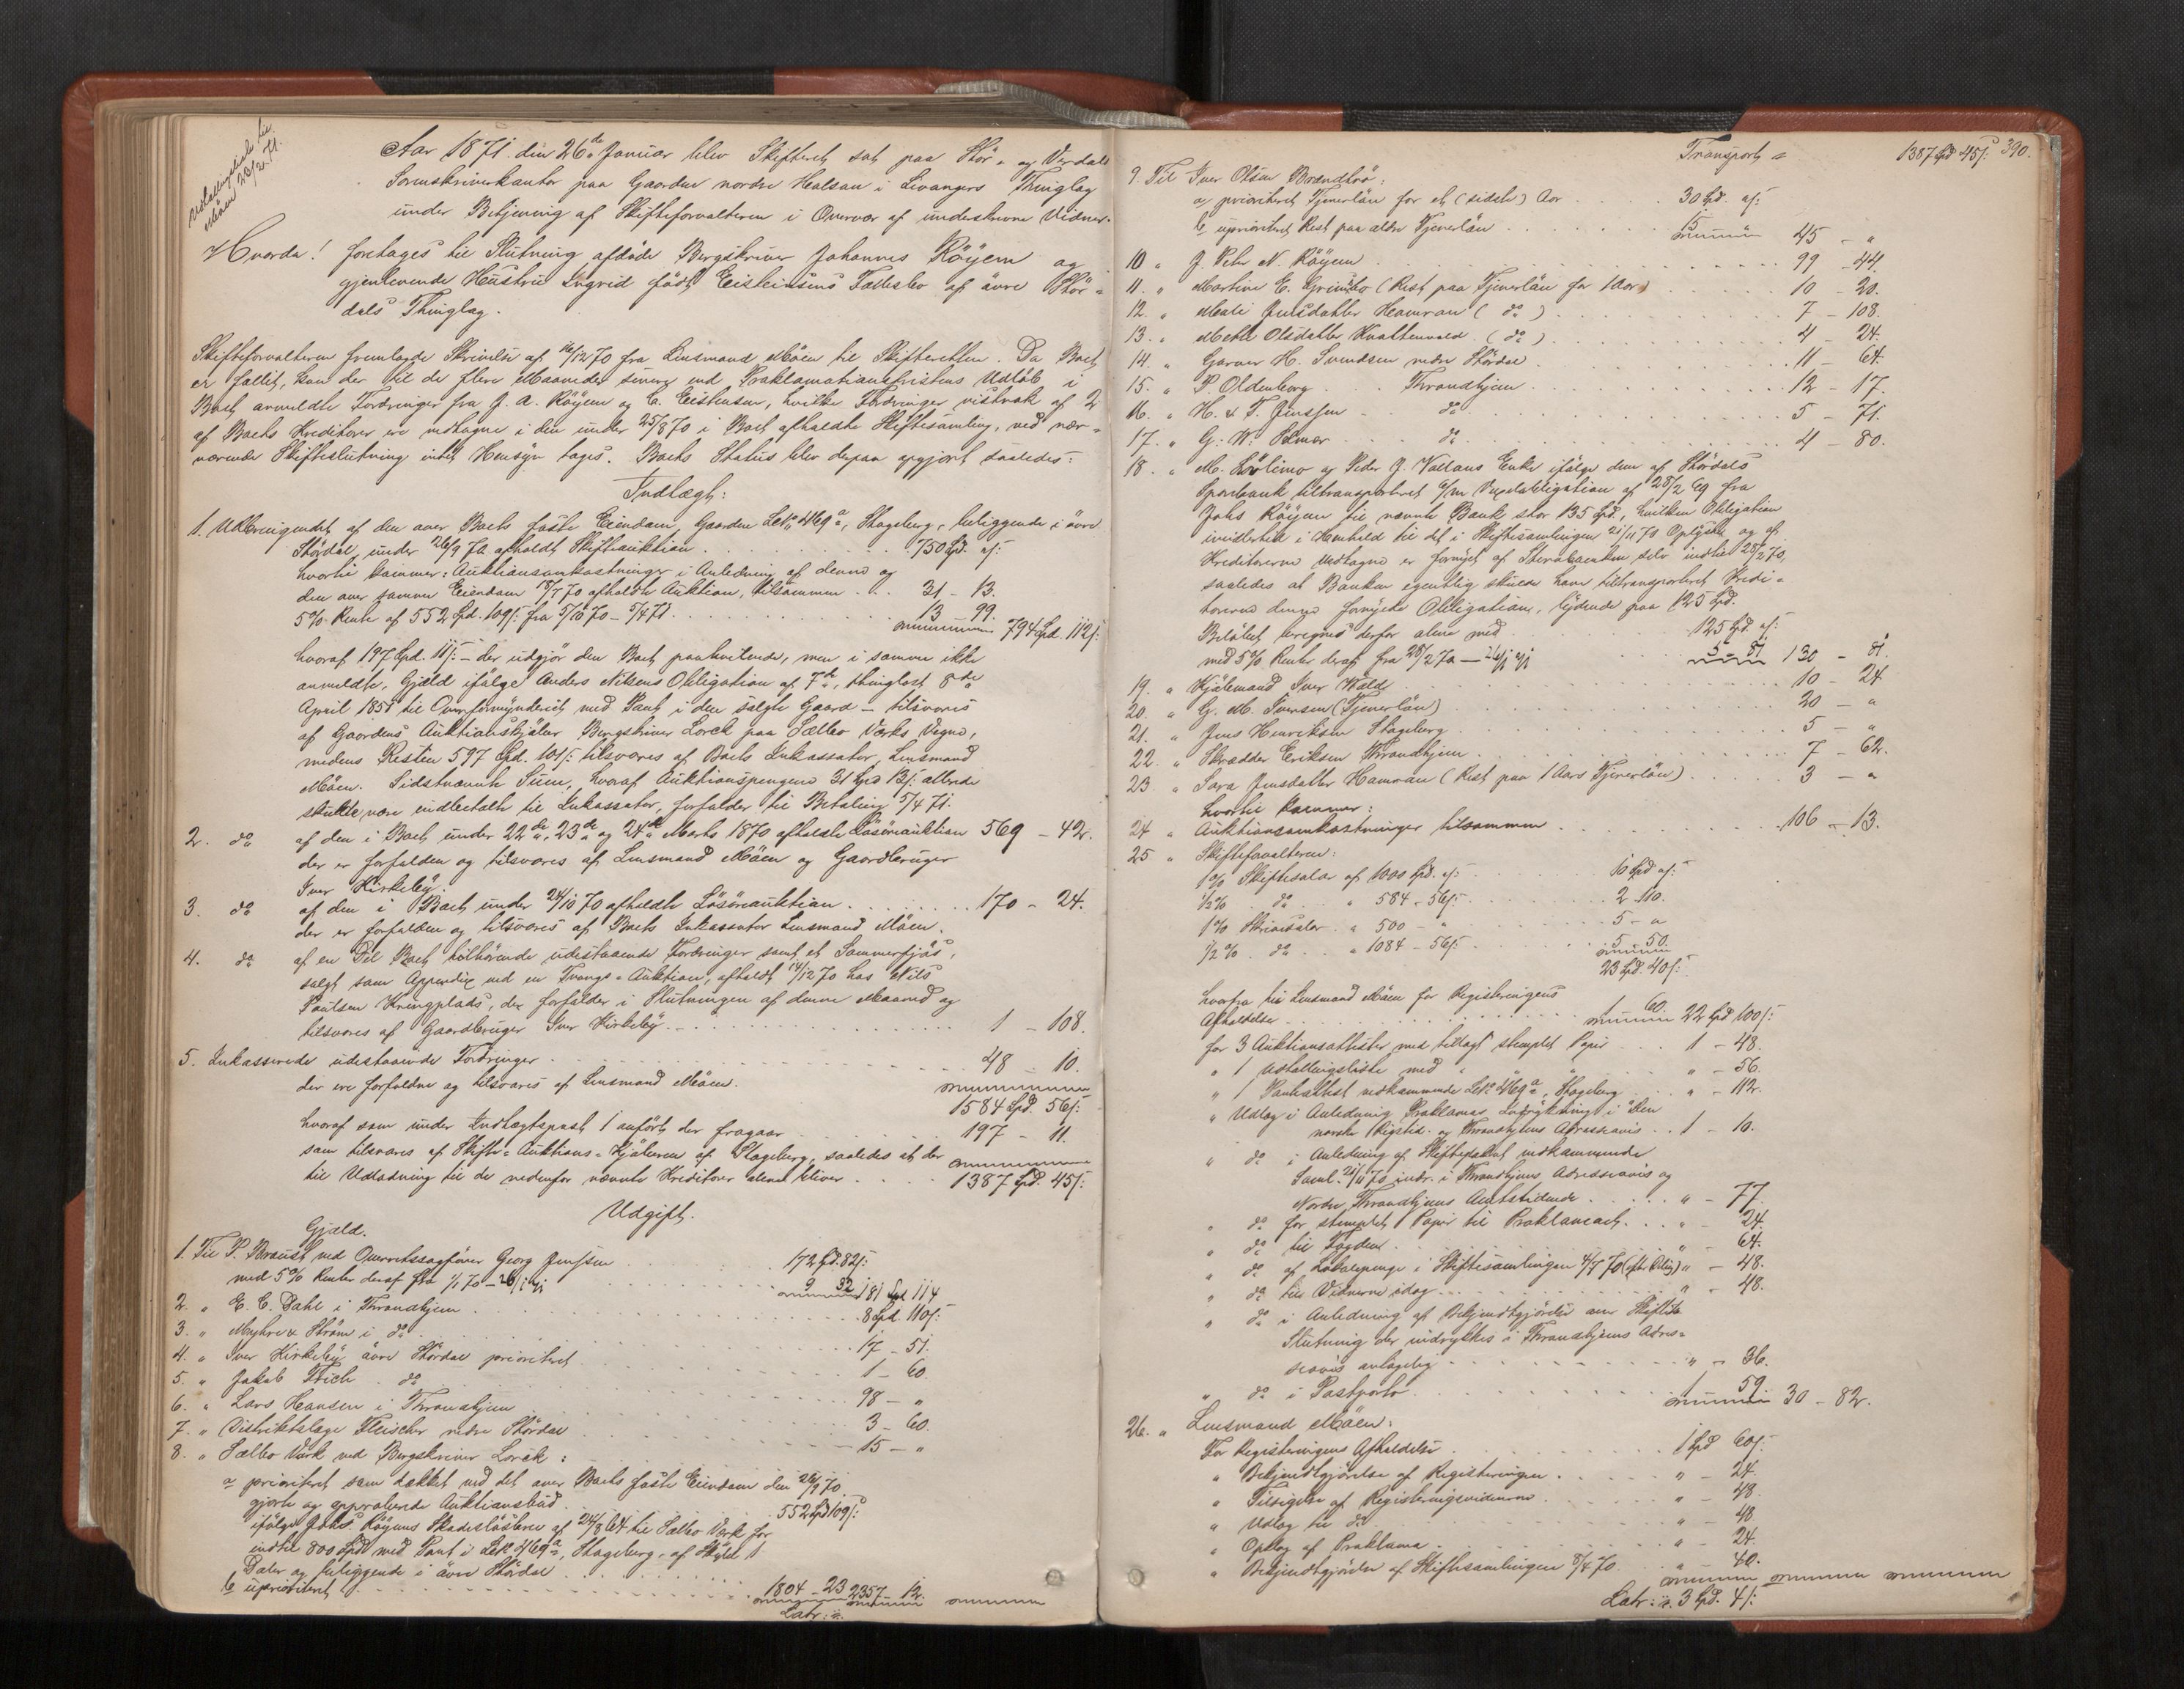 Udlodningsliste til
Möen 26/2 71.
Aar 1871 den 26de Januar blev Skifteret sat paa Stör- og Verdals
Sorenskriverkontor paa Gaarden nordre Halsan i Levangers Thinglag
under Betjening af Skifteforvalteren i Overvær af underskrevne Vidner.
Hvorda! foretages til Slutning afdöde Bergskriver Johannes Röyem og
gjenlevende Hustru Ingrid födt Eisteinsens Fællesbo af övre Stör-
dals Thinglag.
Skifteforvalteren fremlagde Skrivelse af 16/12 70 fra Lensmand Möen til Skifteretten. Da Boet
er fallit, kan der til de flere Maaneder senere end Proklamationsfristens Udlöb i
Boet anmeldte Fordringer fra J. A. Röyem og E. Eisteinsen, hvilke Fordringer vistnok af 2
af Boets Kreditorer ere vedtagne i den under 25/8 70 i Boet afholdte Skiftesamling, ved nær-
værende Skifteslutning intet Hensyn tages. Boets Status blev derpaa opgjort saaledes:
Indtægt:
1. Udbringendet af den over Boets faste Eiendom, Gaarden Lb.No 469a, Stageberg, beliggende i övre
Stördal, under 26/9 70 afholdt Skifteauktion . . . 750 Spd. ß:
hvortil kommer: Auktionsomkostninger i Anledning af denne og
den over samme Eiendom 18/7 70 afholdte Auktion, tilsammen . . 31 - 13.
5% Rente af 552 Spd. 109ß: fra 5/10 70 - 5/4 71. . . . 13 99.
794 Spd. 112ß:
hvoraf 197 Spd. 11ß: - der udgjör den Boet paahvilende, men i samme ikke
anmeldte, Gjæld ifölge Anders Nilsens Obligation af 7de, thinglæst 8de
April 1851 til Overformynderiet med Pant i den solgte Gaard - tilsvares
af Gaardens Auktionskjöber Bergskriver Lorck paa Sælbo Værks Vegne,
medens Resten 597 Spd. 101ß: tilsvares af Boets Inkassator, Lensmand
Möen. Sidstnævnte Sum, hvoraf Auktionspengene 31 Spd 13ß: allerede
skulde være indbetalte til Inkassator, forfalder til Betaling 5/4 71.
2. do af den i Boet under 22de, 23de og 24de Marts 1870 afholdte Lösöreauktion 569 - 42.
der er forfalden og tilsvares af Lensmand Möen og Gaardbruger
Iver Kirkeby.
3. do af den i Boet under 24/10 70 afholdte Lösöreauktion . . . 170 - 24.
der er forfalden og tilsvares af Boets Inkassator Lensmand Möen.
4. do af en Del Boet tilhörende udestaaende Fordringer samt et Sommerfjös,
solgt som Appendix ved en Tvangs-Auktion, afholdt 14/12 70 hos Nils
Poulsen Kringplads, der forfalder i Slutningen af denne Maaned og
tilsvares af Gaardbruger Iver Kirkeby . . . 1 - 108.
5. Inkasserede udestaaende Fordringer . . . 48 - 10.
der ere forfaldne og tilsvares af Lensmand Möen.
1584 Spd. 56ß:
hvoraf som under Indtægtspost 1 anfört der fragaar . . . 197 - 11.
som tilsvares af Skifte-Auktions-Kjöberen af Stageberg, saaledes at der
til Udlodning til de nedenfor nævnte Kreditorer alene bliver . . . 1387 Spd. 45ß:
Udgift.
Gjæld.
1. Til P. Braust ved Overretssagförer Georg Jenssen . . . 172 Spd. 82ß:
med 5% Renter deraf fra 1/1 70 - 26/1 71 . . . 9 32 181 Spd 114
2. " E. C. Dahl i Throndhjem . . . 8 Spd. 110ß:
3. " Myhre & Ström i do . . . 17 - 51.
4. " Iver Kirkeby övre Stördal prioriteret . . . 1 - 60.
5. " Jakob Fried. do . . . 98 - "
6. " Lars Hansen i Throndhjem . . . 3 - 60.
7. " Distriktslæge Fleischer nedre Stördal . . . 15 - "
8. " Sælbo Værk ved Bergskriver Lorck:
a prioriteret som dækket ved det over Boets faste Eiendom den 26/9 70.
gjorte og approberede Auktionsbud . . . 552 Spd 109ß:
ifölge Johs Röyems Skadeslösbrev af 24/8 64 til Sælbo Værk for
indtil 800 Spd med Pant i Lb.No 469a, Stageberg, af Skyld 1
Daler og beliggende i övre Stördal
b uprioriteret . . . 1804 - 23 2357 - 12.
Latr:
Transport 1387 Spd 45ß: 390.
9. Til Iver Olsen Brandhö:
a, prioriteret Tjenerlön for et (sidste) Aar . . . 30 Spd. ß:
b uprioriteret Rest paa ældre Tjenerlön . . . 15 45 - "
10 " J. Peter N. Röyem . . . 99 - 44.
11. " Martine E. Grindbo (Rest paa Tjenerlön for 1 Aar) . . . 10 - 20.
12. " Mali Jensdatter Hamran (do) . . . 7 - 108.
13. " Meth Olsdatter Kvattenvold (do) . . . 4 - 24.
14. " Garver H. Svendsen nedre Stördal . . . 11 - 64.
15. " P Oldenborg . . Throndhjem . . . 12 - 17.
16. " H. & F. Jenssen - do . . . 5 - 71.
17. " G. W. Selmer do . . . 4 - 80.
18. " M. Solimo og Peder J. Vollans Enke ifölge dem af Stördals
Sparebank tiltransporteret 6/m Vexelobligation af 28/2 69 fra
Johs Röyem til nævnte Bank stor 135 Spd., hvilken Obligation
imidlertid i Henhold til det i Skiftesamlingen 21/11 70 Oplyste og af
Kreditorerne Vedtagne er fornyet af Sparebanken selv indtil 28/2 70,
saaledes at Banken egentlig skulde have tiltransporteret Kredi-
torerne denne fornyede Obligation, lydende paa 125 Spd.
Belöbet beregnes derfor alene med . . . 125 Spd. ß:
med 5% Renter deraf fra 28/2 70 - 26/1 71 . . . 5 - 81 130 - 81
19. " Kjöbmand Iver Wold . . . 10 - 24
20. " G. M. Iversen (Tjenerlön) . . . 20 - "
21. " Jens Henriksen Stageberg . . . 5 - "
22. " Skrædder Eriksen Throndhjem . . . 7 - 62.
23. " Sara Jensdatter Hamran (Rest paa 1 Aars Tjenerlön) . . . 3 - "
hvortil kommer:
24 " Auktionsomkostninger tilsammen . . . 106 - 13.
25 " Skifteforvalteren:
1% Skiftesalær af 1000 Spd. ß: . . . 10 Spd ß:
1/2% . do . " 584 - 56ß: . . . 2 110.
1% Skriversalær . " 500 - " . . . 5 - "
1/2% . do . . " 1084 - 56ß: . . . 5 50.
23 Spd. 40ß:
hvorfra til Lensmand Möen for Registeringens
Afholdelse . . . 1 60. 22 Spd 100ß:
for 3 Auktionsattester med tillagt stemplet Papir . . . 1 - 48.
" 1 Udlodningsliste med " " " . . . " - 56.
" 1 Panteattest vedkommende Lb.No 469a, Stageberg . . . " - 112.
" Udlæg i Anledning Proklamas Indrykning i Den
norske Rigstid. og Throndhjems Adresseavis . . 1 - 10.
" do i Anledning af Skifteboet vedkommende
Saml. 21/11 70 indr. i Throndhjems Adresseavis og
Nordre Throndhjems Amtstidende . . . " - 77.
" do for stemplet Papir til Proklamaet . . . " - 24.
" do til Fogden . . . " - 64.
" do af Lokalepenge i Skiftesamlingen 4/7 70 . . . " - 48.
" do til Vidnerne idag . . . " - 48.
" do i Anledning af Bekjendtgjörelse om Skiftets
Slutning der indrykkes i Throndhjems Adres-
seavis antagelig . . . " - 36.
" do i Postporto . . . 1 59. 30 - 82.
26. " Lensmand Möen:
For Registeringens Afholdelse . . . 1 Spd 60ß:
" Bekjendtgjörelse af Registeringen . . . " - 24.
" Tilsigelse af Registeringsvidnerne . . . " - 48
" Udlæg til do . . . " - 48.
" Opslag af Proklama . . . " - 24.
" Bekjendtgjörelse af Skiftesamlingen 8/4 70 . . . " - 40.
Latr: 3 Spd. 4ß: